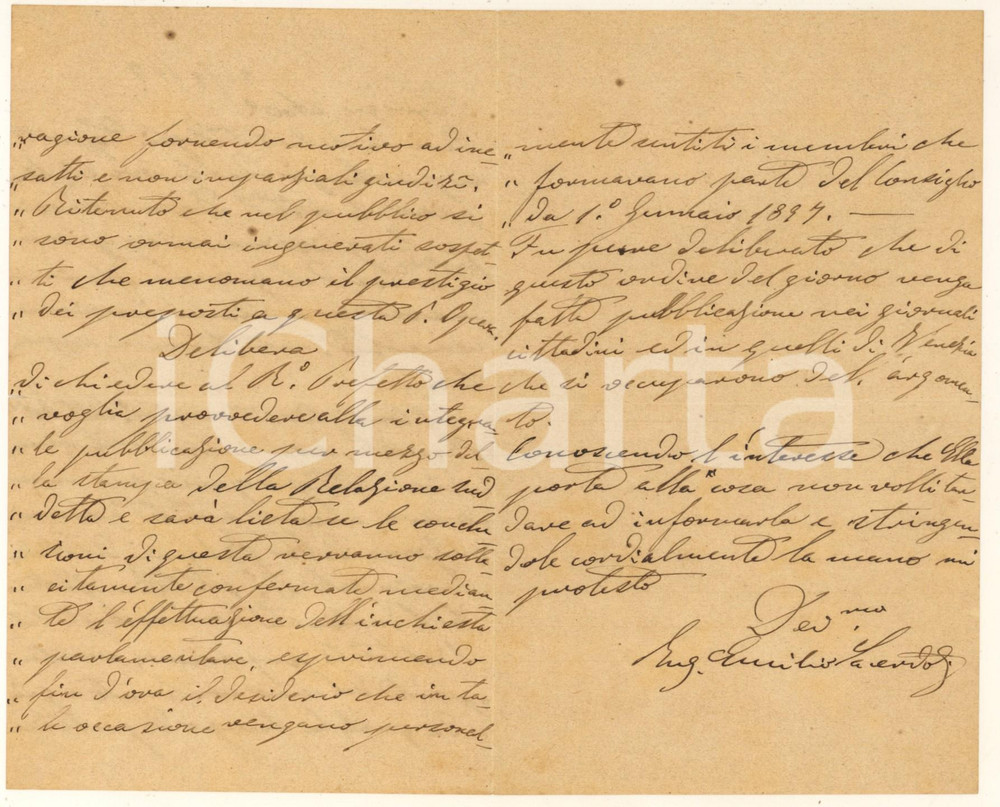 „ragione fornendo motivo ad ine-
„satti e non imparziali giudizî.
„ Ritenuto che nel pubblico si
„ sono ormai ingenerati sospet-
„ ti che menomano il prestigio
„ dei preposti a questa P. Opera.
Delibera
„di chiedere al R.º Prefetto che
„ voglia provvedere alla integra-
„ le pubblicazione per mezzo del
„ la stampa della Relazione sud
„ detta e sarà lieta se le conclu
„ sioni di questa verranno solle
„ citamente confermate median
„ te l'effettuazione dell'inchiesta
„ parlamentare, esprimendo
„ fin d'ora il desiderio che in ta-
„ le occasione vengano personal-
„ mente sentiti i membri che
„ formavano parte del Consiglio
„ da 1.º Gennaio 1897. —
Fu pure deliberato che di
questo ordine del giorno venga
fatta pubblicazione nei giornali
cittadini ed in quelli di Venezia
che si occuparono dell'argomen-
to.
Conoscendo l'interesse che Ella
porta alla cosa non volli tar
dare ad informarla e stringen
dole cordialmente la mano mi
protesto
Dev.mo
Ing. Emilio Sacerdoti
iCharta